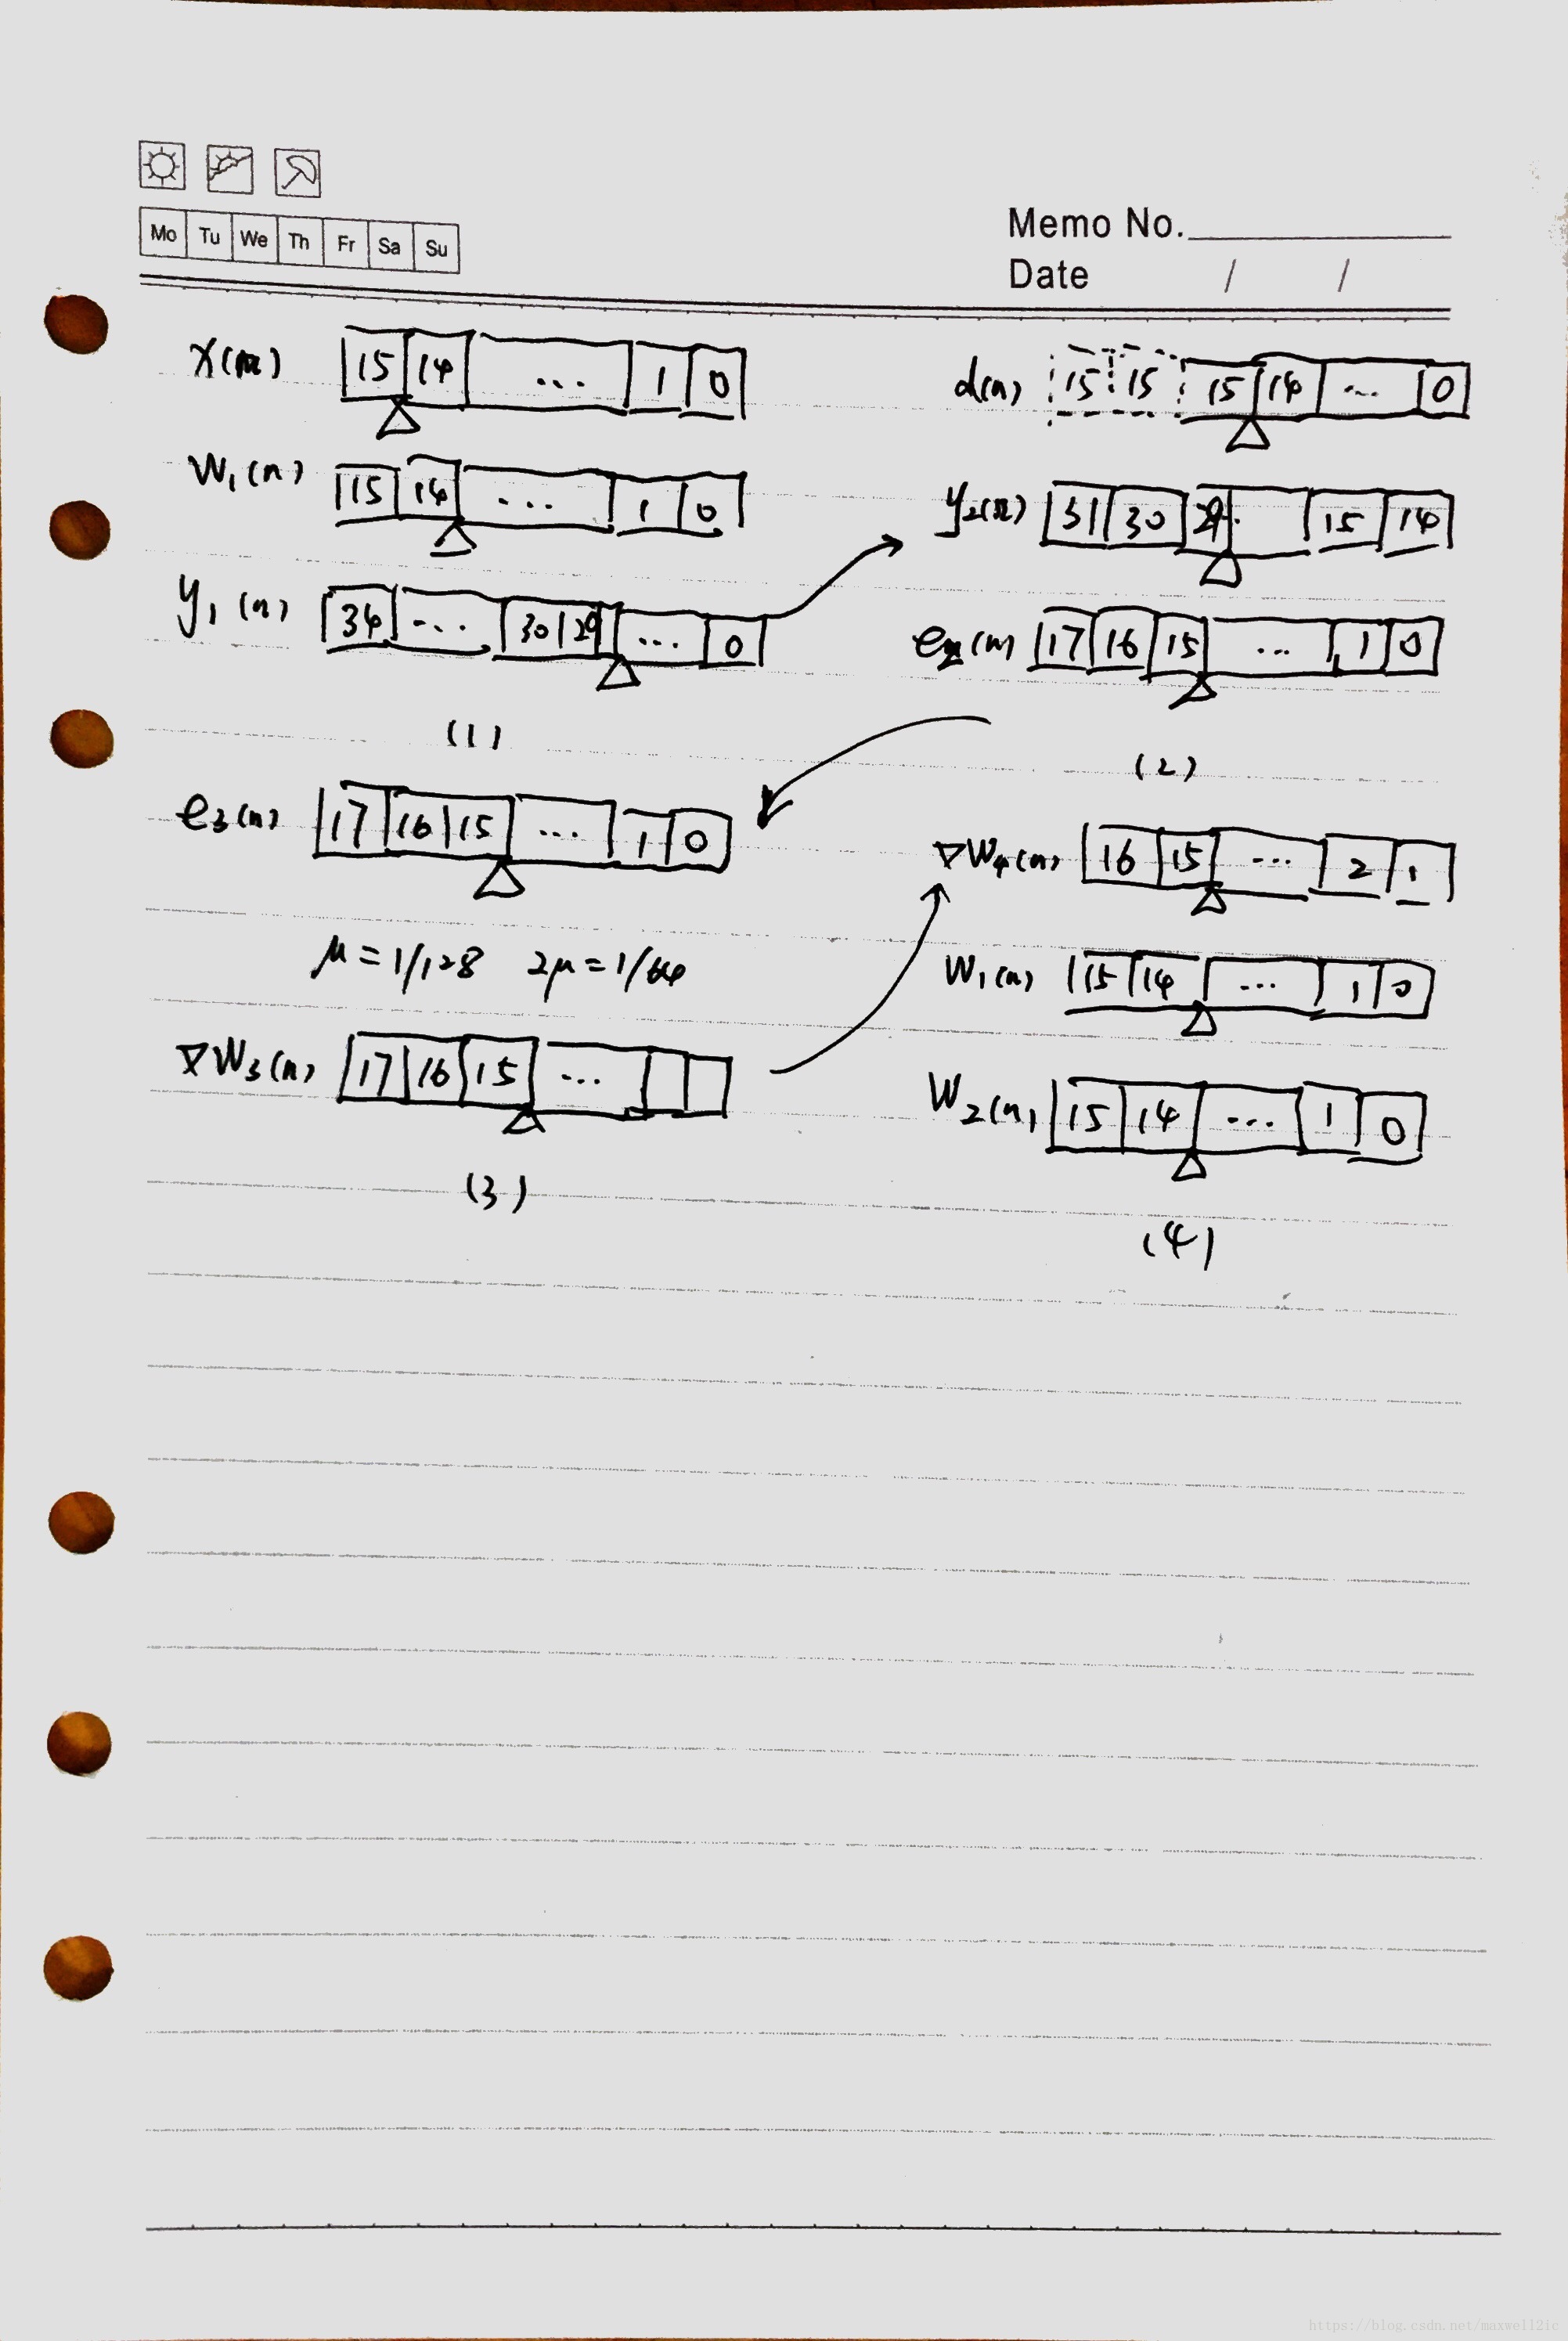 Mo Tu We Th Fr Sa Su
Memo No.
Date / /
x(n) 15 14 ... 1 0
w1(n) 15 14 ... 1 0
y1(n) 34 ... 30 29 ... 0
(1)
d(n) 15 15 15 14 ... 0
y2(n) 31 30 29 . 15 14
e2(n) 17 16 15 ... 1 0
(2)
e3(n) 17 16 15 ... 1 0
μ = 1/128 2μ = 1/64
∇W3(n) 17 16 15 ...
(3)
∇W4(n) 16 15 ... 2 1
W1(n) 15 14 ... 1 0
W2(n) 15 14 ... 1 0
(4)
https://blog.csdn.net/maxwell2ic